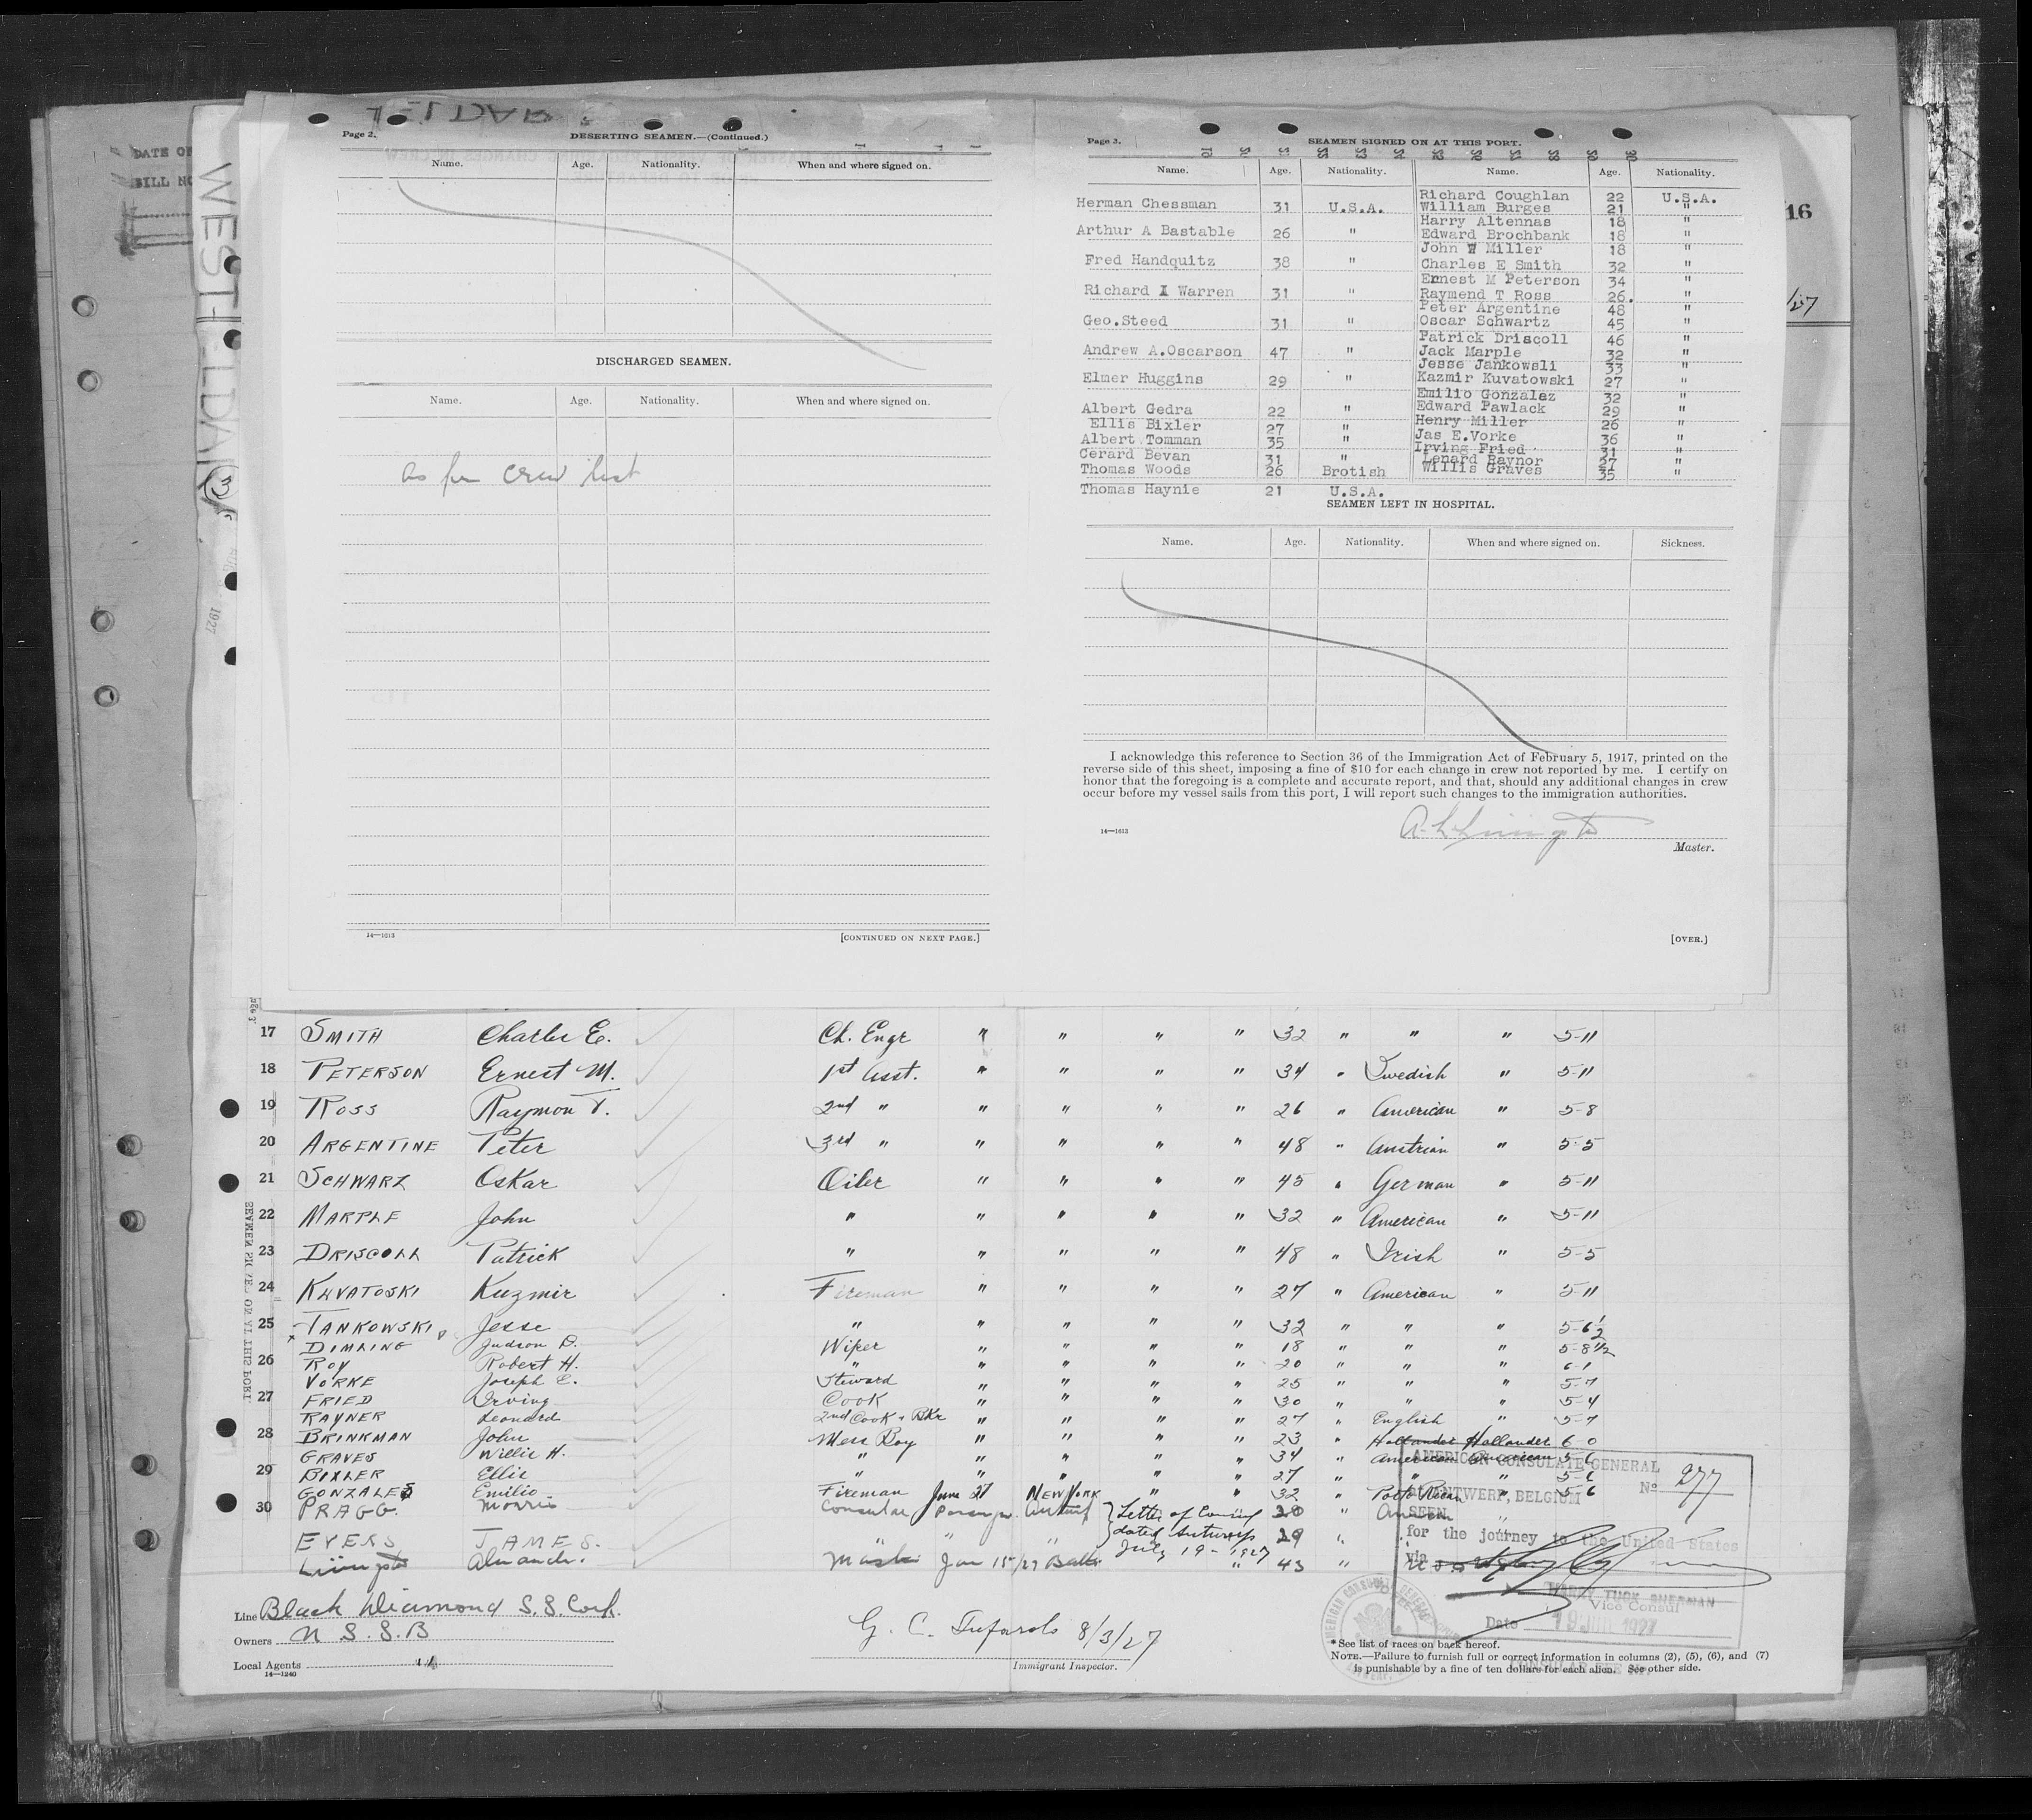 DATE OF
BILL NO
WEST ELDARA
1927
16
Page 2.
DESERTING SEAMEN.—(Continued.)
Name. Age. Nationality. When and where signed on.
DISCHARGED SEAMEN.
Name. Age. Nationality. When and where signed on.
as per crew list
14—1613
[CONTINUED ON NEXT PAGE.]
Page 3.
SEAMEN SIGNED ON AT THIS PORT.
Name. Age. Nationality. Name. Age. Nationality.
Herman Chessman 31 U.S.A.
Arthur A Bastable 26 "
Fred Handquitz 38 "
Richard I Warren 31 "
Geo.Steed 31 "
Andrew A.Oscarson 47 "
Elmer Huggins 29 "
Albert Gedra 22 "
Ellis Bixler 27 "
Albert Tomman 35 "
Cerard Bevan 31 "
Thomas Woods 26 Brotish
Thomas Haynie 21 U.S.A.
Richard Coughlan 22 U.S.A.
William Burges 21 "
Harry Altennas 18 "
Edward Brochbank 18 "
John W Miller 18 "
Charles E Smith 32 "
Ernest M Peterson 34 "
Raymend T Ross 26. "
Peter Argentine 48 "
Oscar Schwartz 45 "
Patrick Driscoll 46 "
Jack Marple 32 "
Jesse Jankowsli 33 "
Kazmir Kuvatowski 27 "
Emilio Gonzalaz 32 "
Edward Pawlack 29 "
Henry Miller 26 "
Jas E.Vorke 36 "
Irving Fried 31 "
Lenard Raynor 27 "
Willis Graves 35
SEAMEN LEFT IN HOSPITAL.
Name. Age. Nationality. When and where signed on. Sickness.
I acknowledge this reference to Section 36 of the Immigration Act of February 5, 1917, printed on the
reverse side of this sheet, imposing a fine of $10 for each change in crew not reported by me. I certify on
honor that the foregoing is a complete and accurate report, and that, should any additional changes in crew
occur before my vessel sails from this port, I will report such changes to the immigration authorities.
14—1613
Master.
[OVER.]
17 SMITH Charles E. Ch. Engr " " " " 32 " " " 5-11
18 PETERSON Ernest M. 1st Asst. " " " " 34 " Swedish " 5-11
19 ROSS Raymon T. 2nd " " " " " 26 " American " 5-8
20 ARGENTINE Peter 3rd " " " " " 48 " Austrian " 5-5
21 SCHWARZ Oskar Oiler " " " " 45 " German " 5-11
22 MARPLE John " " " " " 32 " American " 5-11
23 DRISCOLL Patrick " " " " " 48 " Irish " 5-5
24 KUVATOSKI Kuzmir Fireman " " " " 27 " American " 5-11
25 JANKOWSKI Jesse " " " " " 32 " " " 5-6½
DIMLING Judson D. Wiper " " " " 18 " " " 5-8½
26 ROY Robert H. " " " " " 20 " " " 6-1
VORKE Joseph E. Steward " " " " 25 " " " 5-7
27 FRIED Irving Cook " " " " 30 " " " 5-4
RAYNER Leonard 2nd Cook + Bkr " " " " 27 " English " 5-7
28 BRINKMAN John Mess Boy " " " " 23 " Hollander Hollander 6 0
GRAVES Willis H. " " " " " 34 " American American 5-6
29 BIXLER Ellis " " " " " 27 " " " 5-6
GONZALES Emilio Fireman June 27 NEW YORK " " 32 " Porto Rican " 5-6
30 PRAGG. Morris Consular Letter of Consul "
EYERS JAMES. " " " dated Antwerp 29 "
July 19-1927
Alexander. Master Jan 15/27 Balto " 43 "
AMERICAN CONSULATE GENERAL
No 277
ANTWERP, BELGIUM
SEEN
for the journey to the United States
via
HARRY TUCK SHERMAN
Vice Consul
Date 19 JUL 1927
Line Black Diamond S.S. Corp.
Owners U S. S. B
Local Agents "
14—1240
8/3/27
Immigrant Inspector.
*See list of races on back hereof.
NOTE.—Failure to furnish full or correct information in columns (2), (5), (6), and (7)
is punishable by a fine of ten dollars for each alien. See other side.